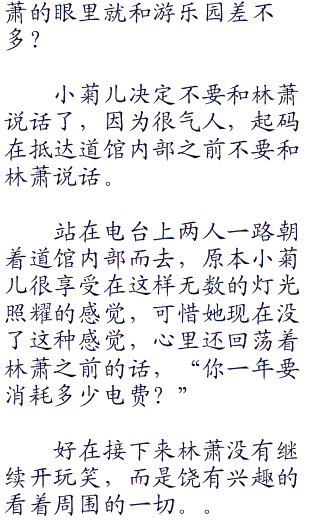 萧的眼里就和游乐园差不
多？
小菊儿决定不要和林萧
说话了，因为很气人，起码
在抵达道馆内部之前不要和
林萧说话。
站在电台上两人一路朝
着道馆内部而去，原本小菊
儿很享受在这样无数的灯光
照耀的感觉，可惜她现在没
了这种感觉，心里还回荡着
林萧之前的话，“你一年要
消耗多少电费？”
好在接下来林萧没有继
续开玩笑，而是饶有兴趣的
看着周围的一切。。